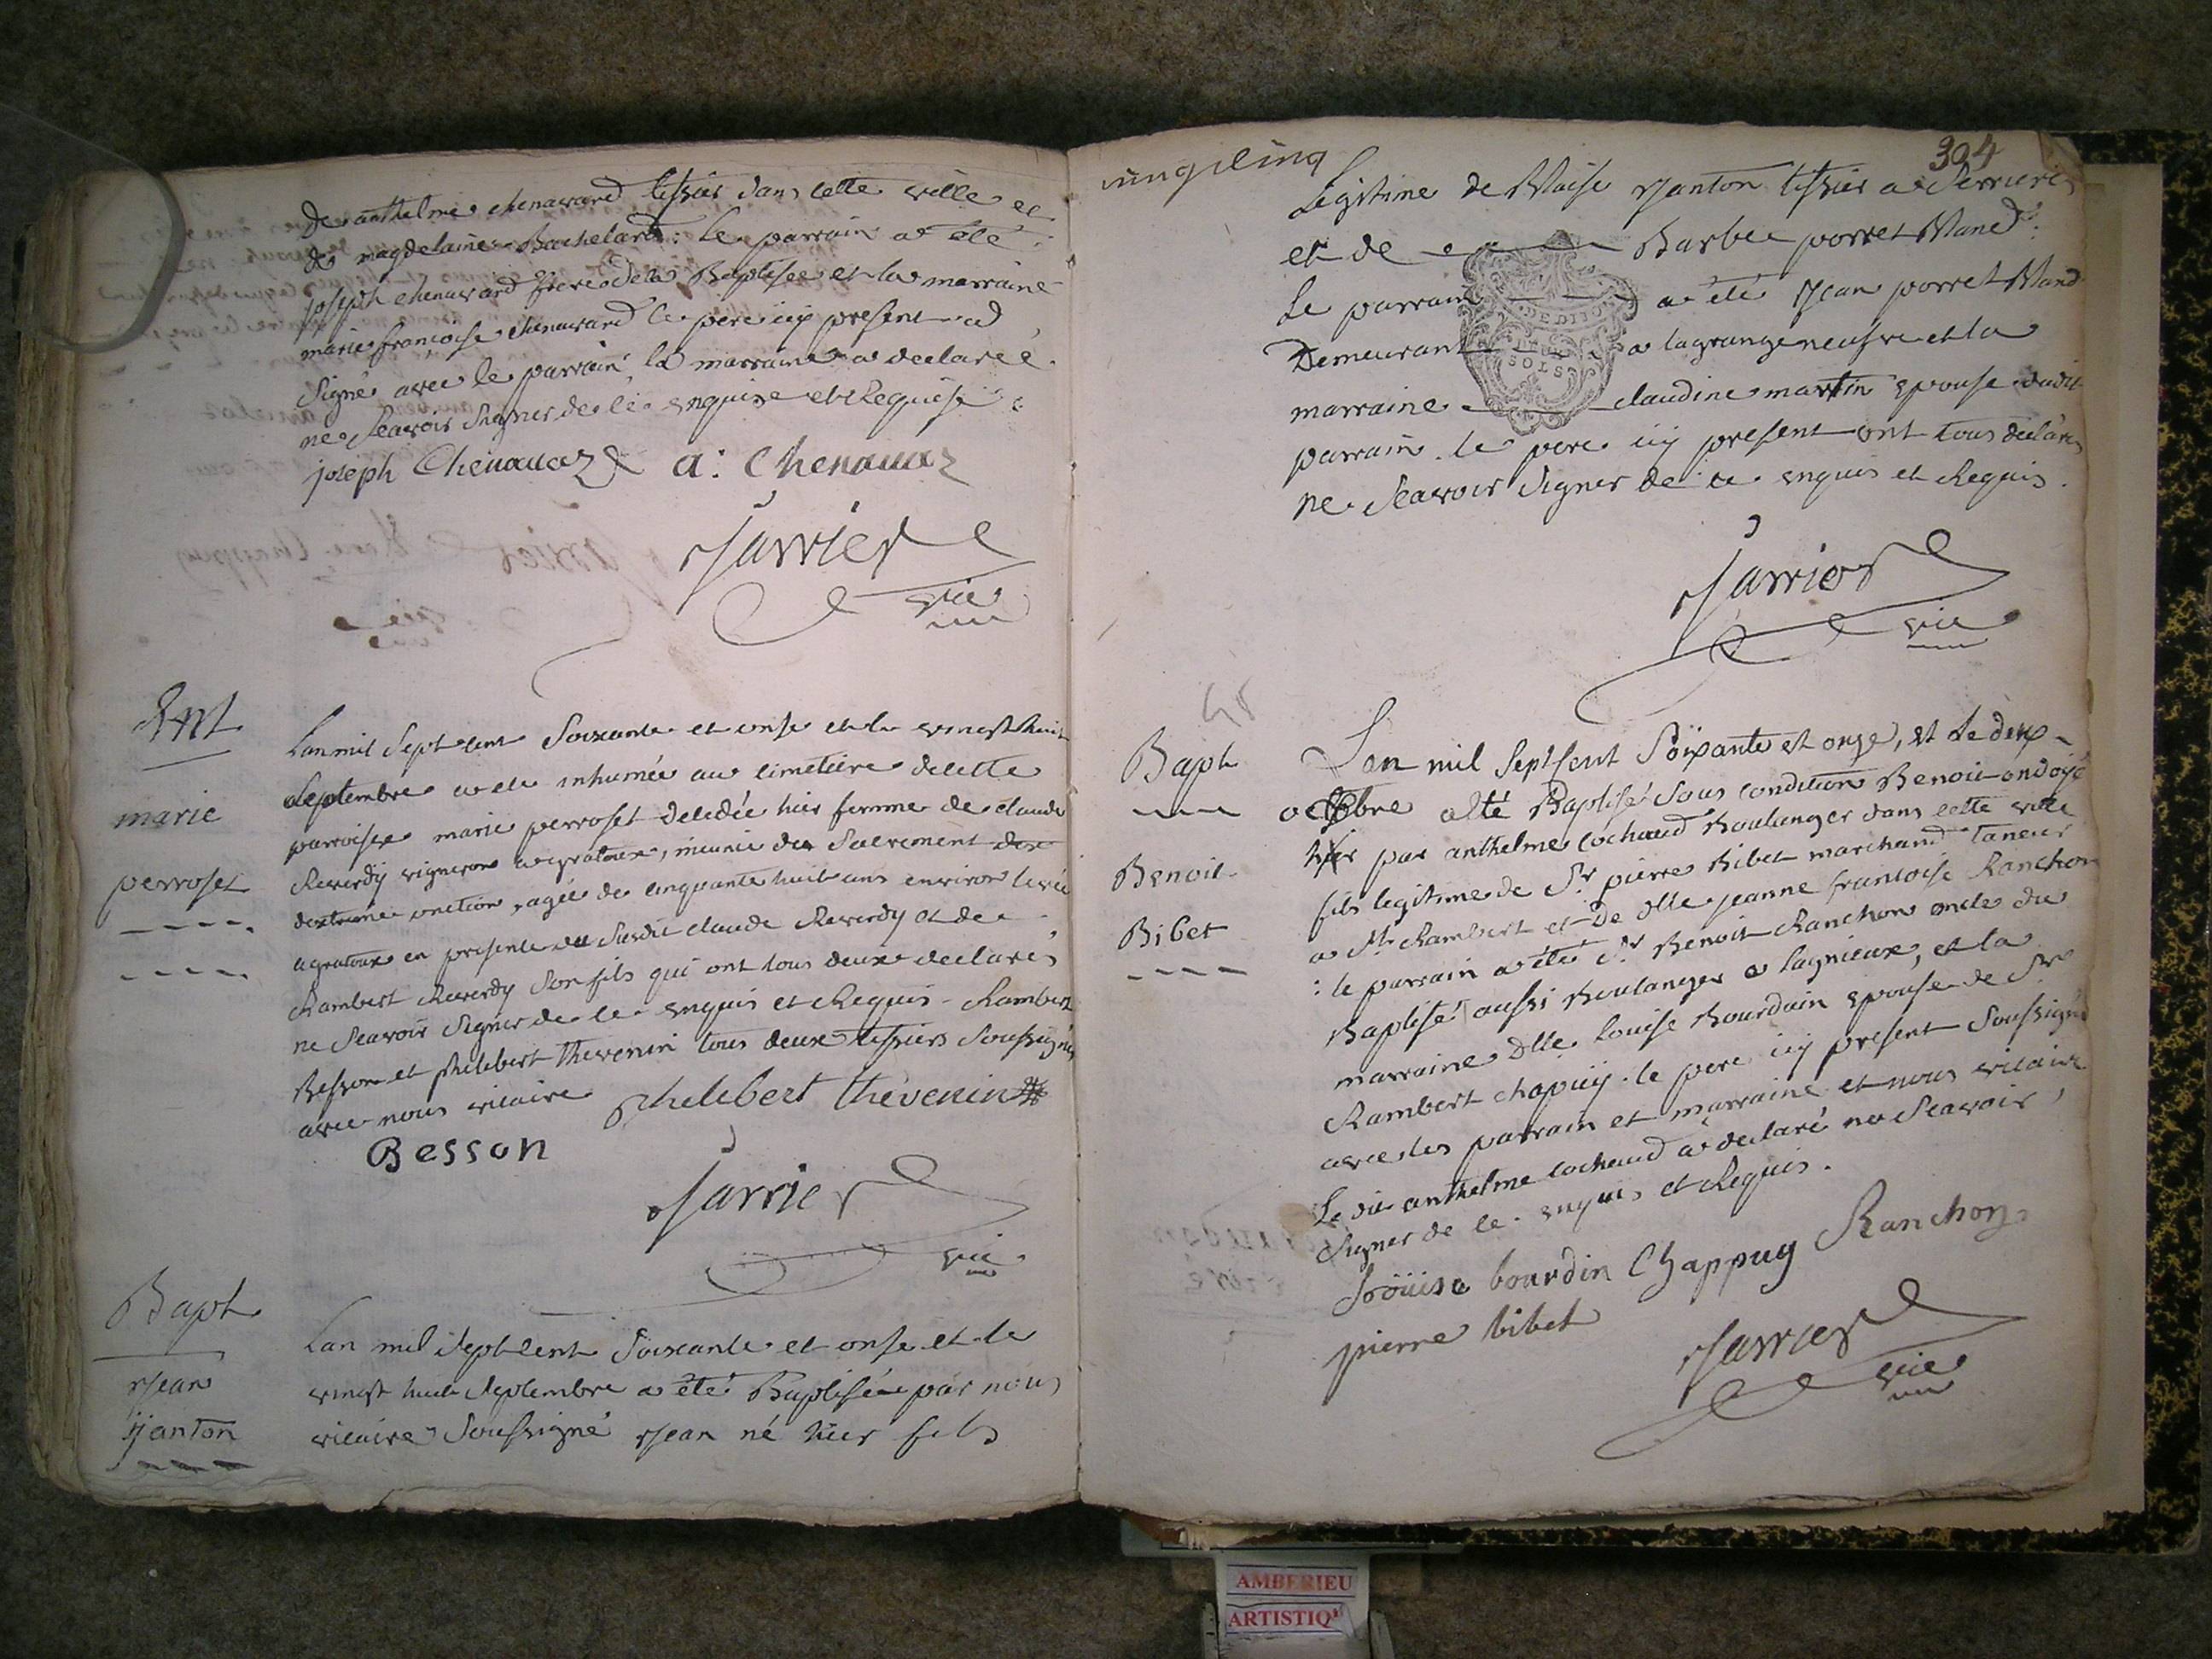 De anthelme chenavard tissier dans cette ville et
de magdelaine Bachelard: le parrain a été
joseph chenavard frere de la Baptisée et la marraine
marie françoise chenavard le pere icy present a
Signé avec le parrain la marraine a declaré
ne Scavoir Signer de ce enquise et Requise
joseph Chenavaz a: Chenavaz
Jarrier
vic
Ent
marie
perroset
Lan mil Sept cent Soixante et onse et le vingt huit
Septembre a été inhumée au cimetiere de cette
parroisse marie perroset decedée hier femme de claude
Reverdy vigneron a gratoux, munie du Sacrement de
dextreme onction, agée de cinquante huit ans environ levée
a gratoux en presence du Susdit claude Reverdy et de
Rambert Reverdy Son fils qui ont tous deux declarés
ne Scavoir Signer de ce enquis et Requis Rambert
Besson et philibert thevenin tous deux tissiers Soussignés
avec nous vicaire phelebert thévenin
Besson
Jarrier
vic
Bapt
jean
janton
Lan mil Sept cent Soixante et onse et le
vingt huit Septembre a été Baptisé par nous
vicaire Soussigné jean né hier fils
vingt cinq
304
Legitime de Blaise janton tissier a Serrieres
et de Barbe porret Bland
Le parrain a été jean porret Bland
Demeurant a la grange neufve et la
marraine claudine martin epouse dudit
parrain. le pere icy present ont tous declarés
ne Scavoir Signer de ce enquis et Requis.
Jarrier
vic
48
Bapt
Benoit
Bibet
Lan mil Sept Cent Soixante et onze, et Le deux
octobre a été Baptisé Sous condition Benoit ondoyé
hier par anthelme cochaud Boulanger dans cette ville
fils legitime de Sr pierre Bibet marchand taneur
a St Rambert et de dlle jeanne francoise Ranchon
: le parrain a été Sr Benoit Ranchon oncle du
Baptisé aussi Boulanger a lagnieux, et la
marraine dlle Louise Bourdain epouse de Sr
Rambert chapuiy. le pere icy present Soussigné
avec les parrain et marraine et nous vicaire
Le dit anthelme cochaud a declaré ne Scavoir
Signer de ce enquis et Requis.
Loüise bourdin Chappuy Ranchon
pierre bibet
Jarrier
vic
AMBERIEU
ARTISTIQ